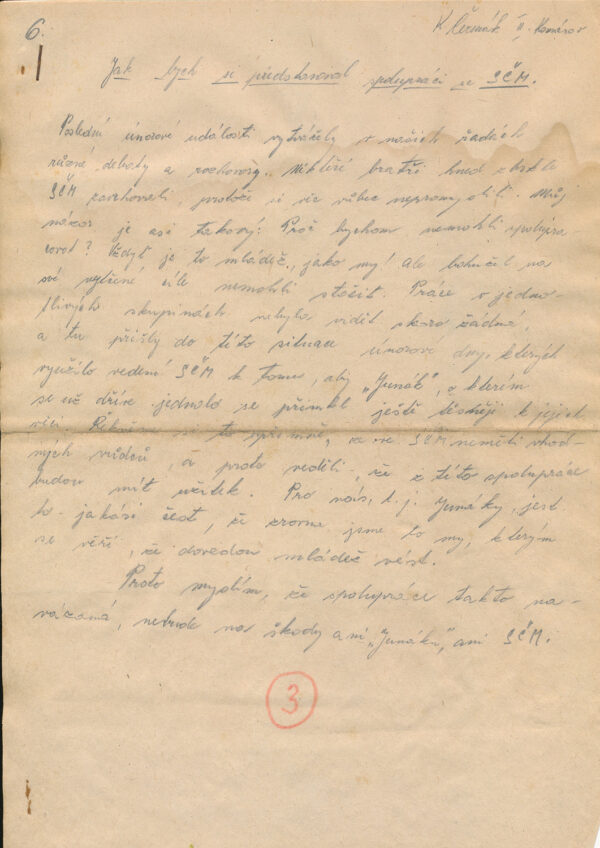 6.
K Čermák II. Komárov
Jak bych si představoval spolupráci se SČM.
Poslední únorové události vytvářely v našich řadách
různé debaty a rozhovory. Někteří bratři hned z brku
SČM zavrhovali, protože si věc vůbec nepromysleli. Můj
názor je asi takový: Proč bychom nemohli spolupra-
covat? Vždyť je to mládež, jako my! Ale bohužel na
své vytčené cíle nemohli stačit. Práce v jedno-
tlivých skupinách nebylo vidět skoro žádná,
a tu přišly do této situace únorové dny, kterých
využilo vedení SČM k tomu, aby "Junák", o kterém
se už dříve jednalo se přimkl ještě těsněji k jejich
věci. Řekněme si to upřímně, že ve SČM neměli vhod-
ných vůdců, a proto věděli, že z této spolupráce
budou mít užitek. Pro nás, t. j. Junáky, jest
to jakási čest, že zrovna jsme to my, kterým
se věří, že dovedou mládež vést.
Proto myslím, že spolupráce takto na-
vázaná, nebude na škodu ani "Junáku", ani SČM.
3